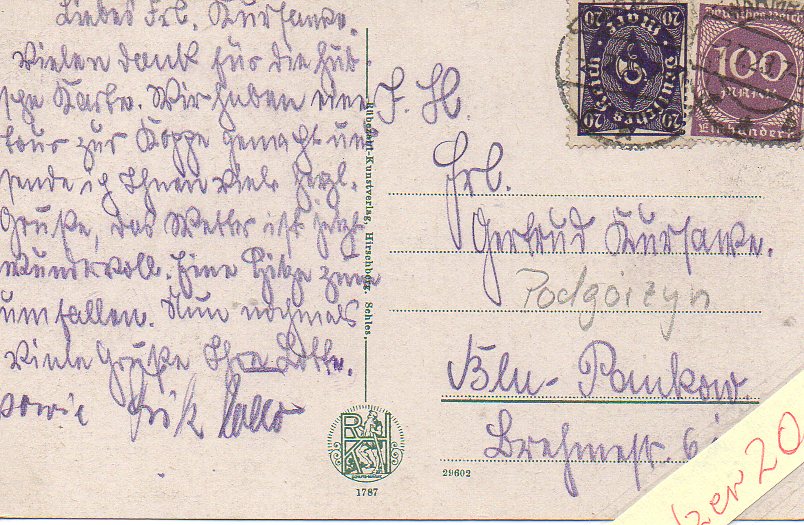 Liebes Frl. Kursawe.
Vielen Dank für die hüb-
sche Karte. Wir haben eine
Tour zur Koppe gemacht und
sende ich Ihnen viele herzl.
Grüße, das Wetter ist jetzt
wundervoll. Eine Hitze zum
umfallen. Nun nochmals
viele Grüße Ihre Lotte.
sowie
Rübezahl-Kunstverlag, Hirschberg, Schles.
RKH
1787
20 20
Deutsches Reich
20 20
Deutsches Reich
100
Mark
Einhundert
Frl.
Gertrud Kursawe.
Podgórzyn
Bln-Pankow.
Brehmestr. 6
29602
20